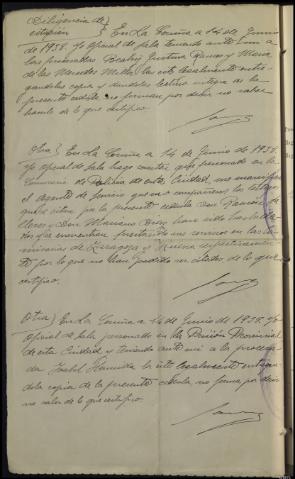 Diligencia de
citación } En La Coruña a 14 de Junio
de 1938. Yo Oficial de Sala teniendo ante mi a
las procesadas Beatriz Ramos y Maria
de las Mercedes las cité legalmente entre-
gandoles copia y dandoles lectura integra de la
presente cédula no firman por decir no saber
hacerlo de lo que certifico.
Otra } En La Coruña a 14 de Junio de 1938.
Yo Oficial de Sala hago constar que personado en la
Comisaria de Policia de esta Ciudad, me manifestó
el Agente de servicio que sus compañeros los testigos
que cita la presente cédula Don Ramón
y Don Mariano Diez han sido trasladados
y se encuentran prestando sus servicios en las Co-
misarias de Zaragoza y Huesca respectivamen-
te por lo que no han podido ser citados de lo que
certifico.
Otra } En La Coruña a 14 de Junio de 1938. Yo
Oficial de Sala personado en la Prisión Provincial
de esta Ciudad y teniendo ante mi a la procesa-
da Isabel la cité legalmente entregan-
dole copia de la presente cédula no firma por decir
no saber de lo que certifico.